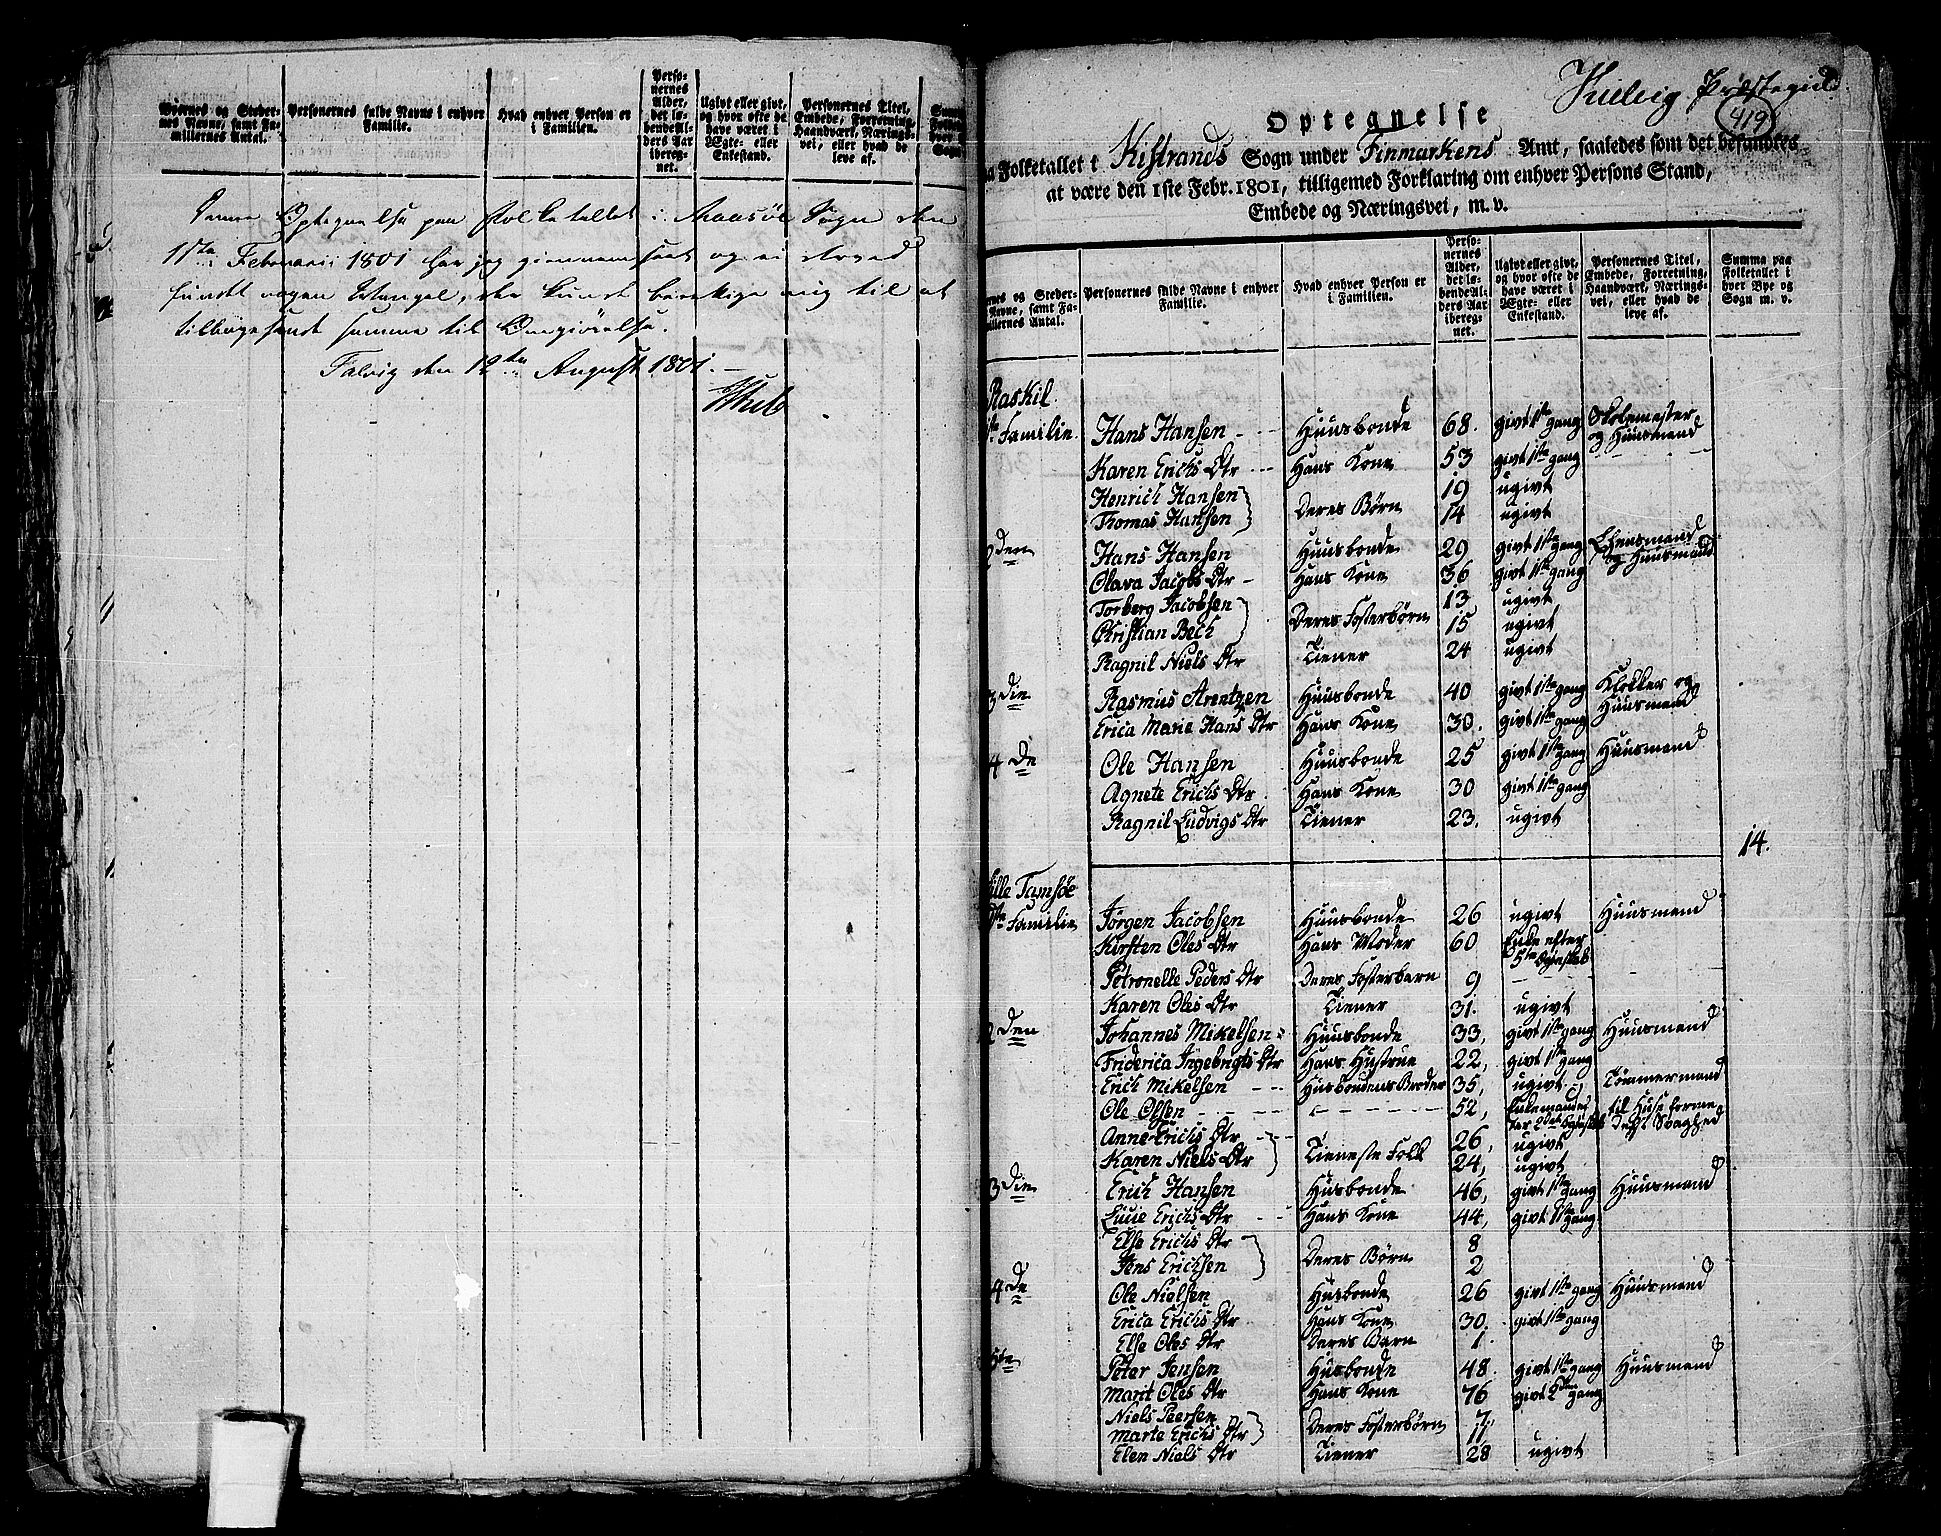 Byernes og Steder-
nes Navne, samt Fa-
milliernes Antal.
Personernes fulde Navne i enhver
Familie.
Hvad enhver Person er
i Familien.
Perso-
nernes
Alder,
det lø-
bende Al-
ders Aar
ibereg-
net.
Ugivt eller givt,
og hvor ofte de
have været i
Ægte- eller
Enkestand.
Personernes Titel,
Embede, Forretning,
Haandværk, Nærings-
vei, eller hvad de
leve af.
Denne Optegnelse paa Folketallet i Maasøe Sogn den
1ste Februarii 1801 har jeg giennemseet og ei derved
fundet nogen Mangel, der kunde bevæge mig til at
tilbagesende samme til Omgiørelse.
Talvig den 12te August 1801.
Kielvig Præstegield
419
Optegnelse
Folketallet i Kistrands Sogn under Finmarkens Amt, saaledes som det befandtes
at være den 1ste Febr. 1801, tilligemed Forklaring om enhver Persons Stand,
Embede og Næringsvei, m. v.
nes og Steder-
Navne, samt Fa-
milliernes Antal.
Personernes fulde Navne i enhver
Familie.
Hvad enhver Person er
i Familien.
Perso-
nernes
Alder,
det lø-
bende Al-
ders Aar
ibereg-
net.
Ugivt eller givt,
og hvor ofte de
have været i
Ægte- eller
Enkestand.
Personernes Titel,
Embede, Forretning,
Haandværk, Nærings-
vei, eller hvad de
leve af.
Summa paa
Folketallet i
hver Bye og
Sogn m. v.
Raskil.
1ste Familie. Hans Hansen Huusbonde 68. givt 1ste gang Skolemester og Huusmand
Karen Erichs Dtr Hans Kone 53 givt 1ste gang
Henrich Hansen 19 ugivt
Thomas Hansen Deres Børn 14 ugivt
2den Hans Hansen Huusbonde 29 givt 1ste gang Lhensmand og Huusmand
Olava Jacobs Dtr Hans Kone 36 givt 1ste gang
Torberg Jacobsen 13 ugivt
Christian Bech Deres Fosterbørn 15 ugivt
Ragnil Niels Dtr Tiener 24 ugivt
3die Rasmus Arentzen Huusbonde 40 givt 1ste gang Klokker og Huusmand
Erica Marie Hans Dtr Hans Kone 30. givt 1ste gang
4de Ole Hansen Huusbonde 25 givt 1ste gang Huusmand
Agnete Erichs Dtr Hans Kone 30 givt 1ste gang
Ragnil Ludvigs Dtr Tiener 23. ugivt
14.
Lille Tamsøe
1ste Familie Jørgen Jacobsen Huusbonde 26 ugivt Huusmand
Kirsten Oles Dtr Hans Moder 60 Enke efter 5te Ægteskab
Petronelle Peders Dtr Deres Fosterbarn 9
Karen Oles Dtr Tiener 31. ugivt
2den Johannes Mikelsen Huusbonde 33, givt 1ste gang Huusmand
Friderica Ingebrigts Dtr Hans Hustrue 22, givt 1ste gang
Erich Mikelsen Husbondens Broder 35, ugivt Tømmermand
Ole Olsen 52, Enkemand ef-ter 2det Ægteskab til Huse
Anne Erichs Dtr 26, ugivt
Karen Niels Dtr Tieneste Folk 24, ugivt
3die Erich Hansen Husbonde 46, givt 1ste gang Huusmand
Lucie Erichs Dtr Hans Kone 44, givt 1ste gang
Else Erichs Dtr 8
Jens Erichsen Deres Børn 2
4de Ole Nielsen Husbonde 26 givt 1ste gang Huusmand
Erica Erichs Dtr Hans Kone 30. givt 1ste gang
Else Oles Dtr Deres Barn 1.
5te Peter Jensen Husbonde 48 givt 1ste gang Huusmand
Marit Oles Dtr Hans Kone 76 givt 2den gang
Niels Peersen 7.
Marte Erichs Dtr Deres Fosterbørn 11
Elen Niels Dtr Tiener 28 ugivt